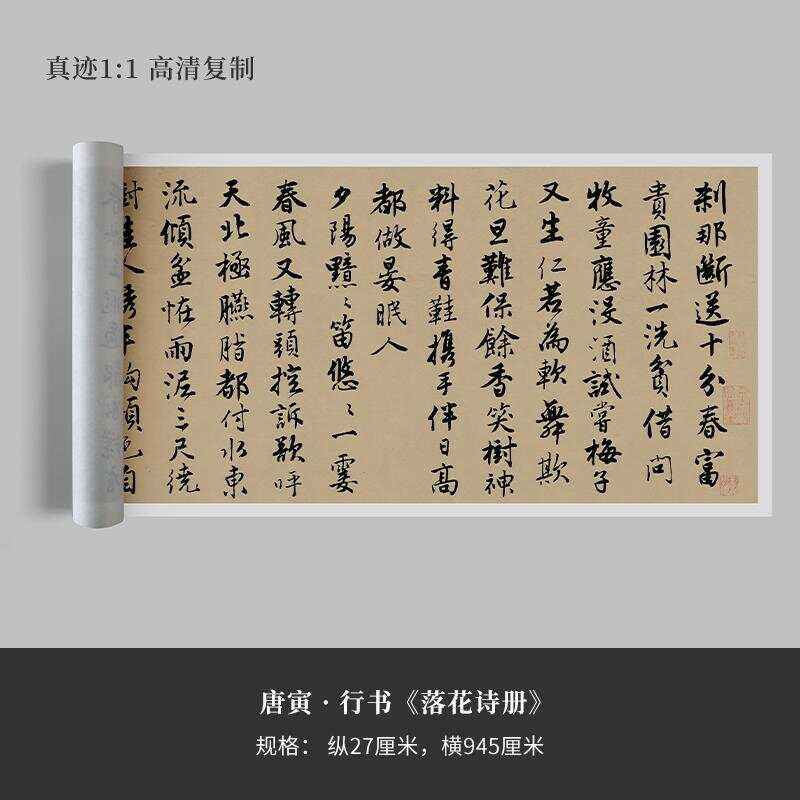 真迹1:1 高清复制
刹那斷送十分春富
貴園林一洗貧借問
牧童應沒酒試嘗梅子
又生仁若為軟舞欺
花旦難保餘香笑樹神
料得青鞋携手伴日高
都做晏眠人
夕陽黯〻笛悠〻一霎
春風又轉頭控訴欲呼
天北極臙脂都付水東
流傾盆怪雨泥三尺繞
佳人繡半鈎顏色自
唐寅·行书《落花诗册》
规格： 纵27厘米，横945厘米